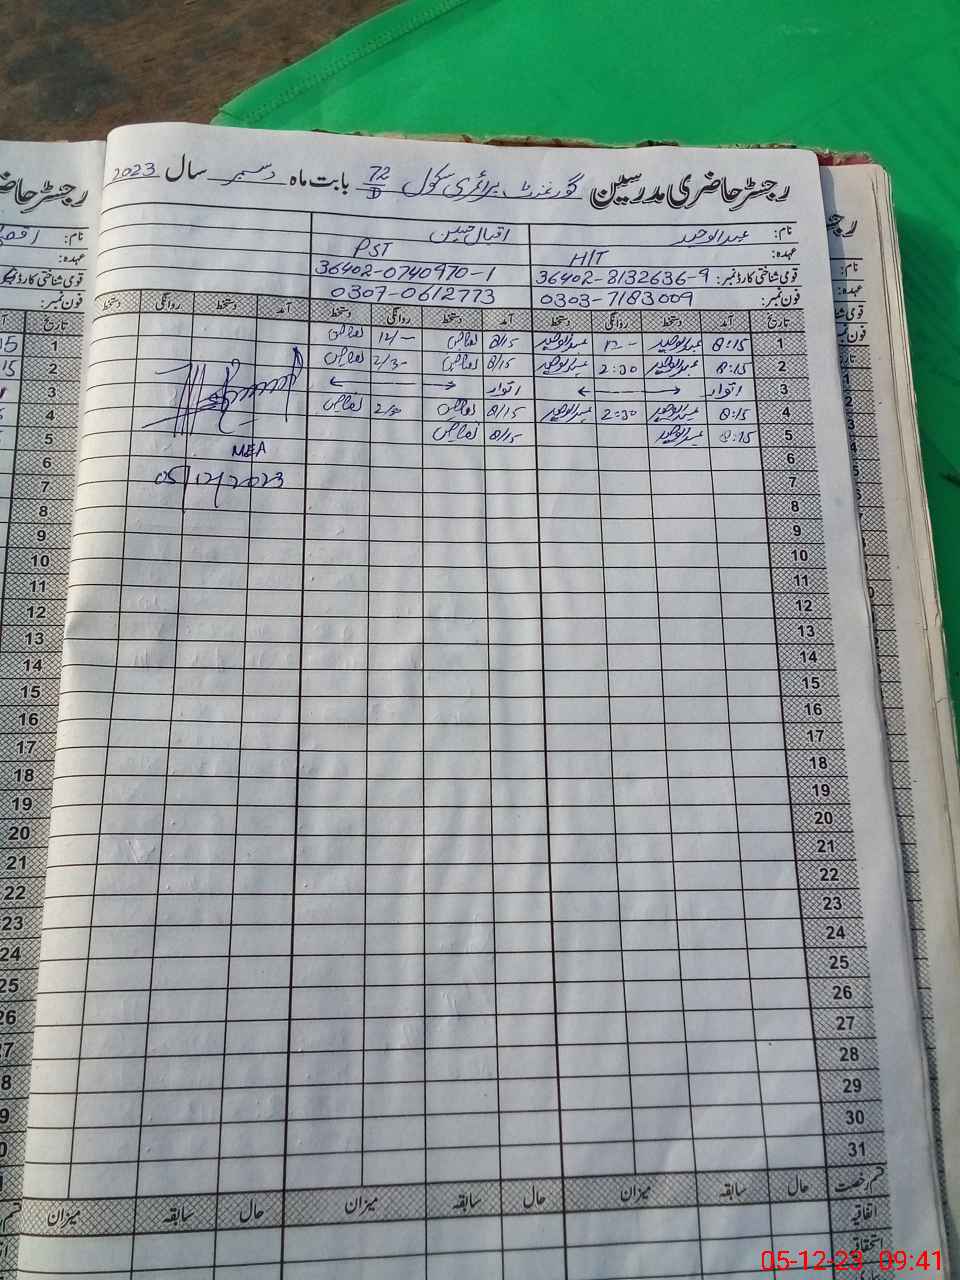 رجسٹر حاضری مدرسین گورنمنٹ پرائمری سکول 72/D بابت ماہ دسمبر سال 2023
نام: عبدالوحید اقبال حسین
عہدہ: H/T PST
قومی شناختی کارڈ نمبر: 36402-8132636-9 36402-0740970-1
فون نمبر: 0303-7183009 0307-0612773
تاریخ آمد دستخط روانگی دستخط آمد دستخط روانگی دستخط آمد دستخط روانگی دستخط
1 8:15 عبدالوحید 12- عبدالوحید 8/15 12/-
2 8:15 عبدالوحید 2:30 عبدالوحید 8/15 2/30
3 اتوار اتوار
4 8:15 عبدالوحید 2:30 عبدالوحید 8/15 2/30
5 8:15 عبدالوحید 8/15
MEA
6
7 05/12/2023
8
9
10
11
12
13
14
15
16
17
18
19
20
21
22
23
24
25
26
27
28
29
30
31
قسم رخصت حال سابقہ میزان حال سابقہ میزان حال سابقہ میزان
اتفاقیہ
استحقاقی
05-12-23 09:41